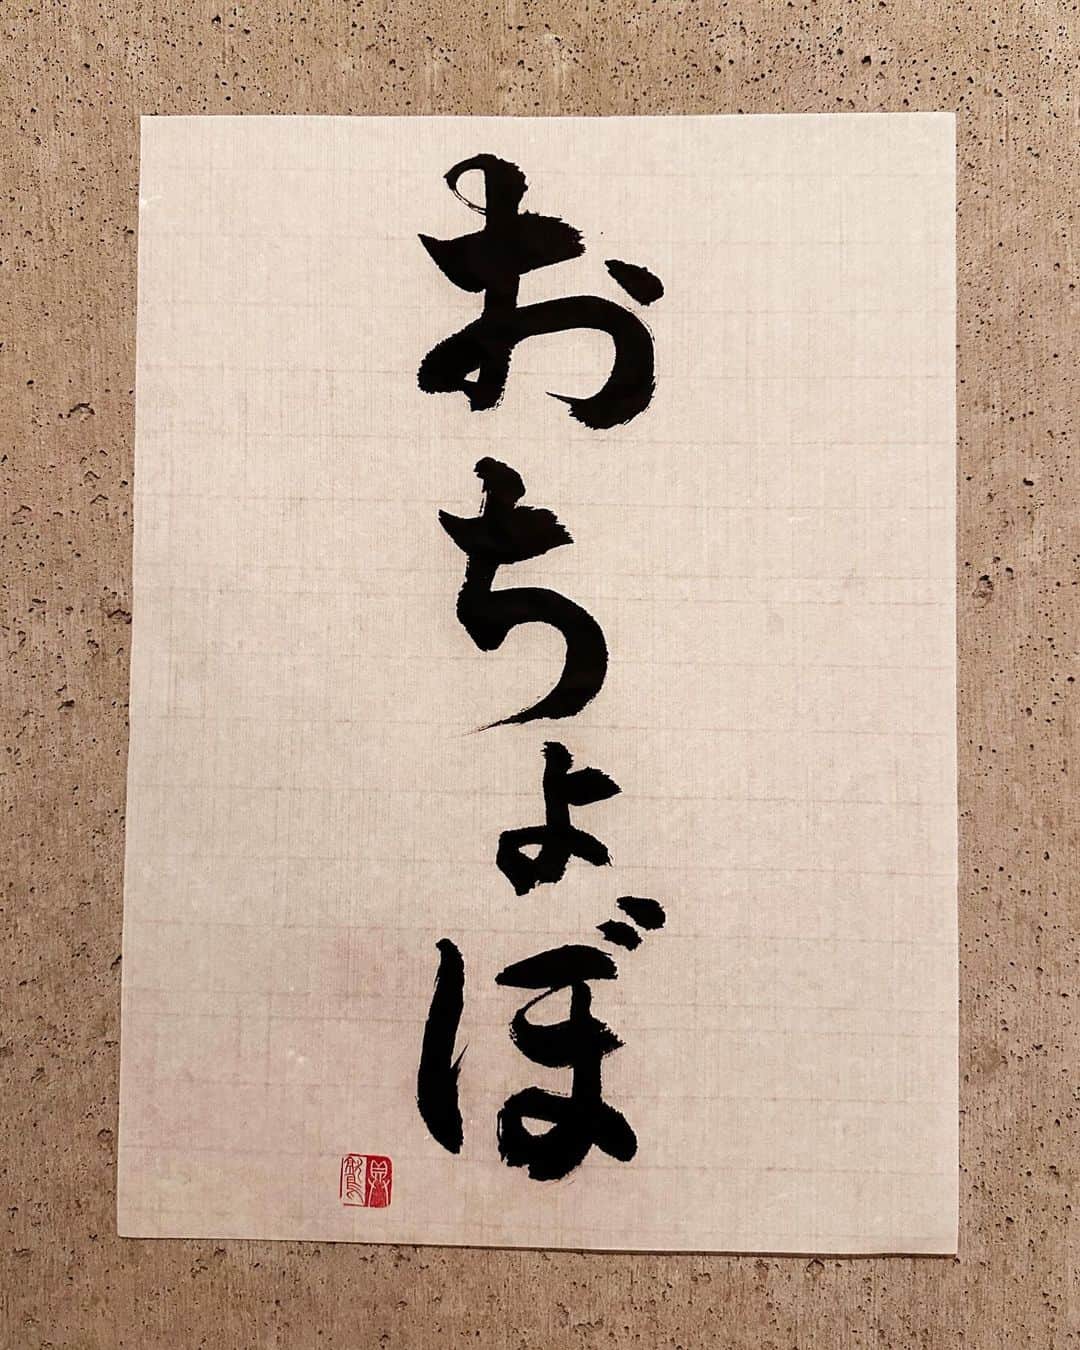 おちょぼ